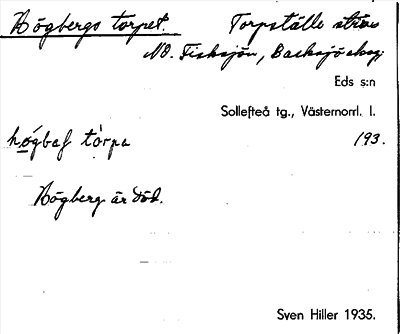 Högbergs torpet. Torpställe strax
NO. Fisksjön, Backsjö skog;
Eds s:n
Sollefteå tg., Västernorrl. l.
hógbaſ tòrpa 193.
Högberg är död.
Sven Hiller 1935.